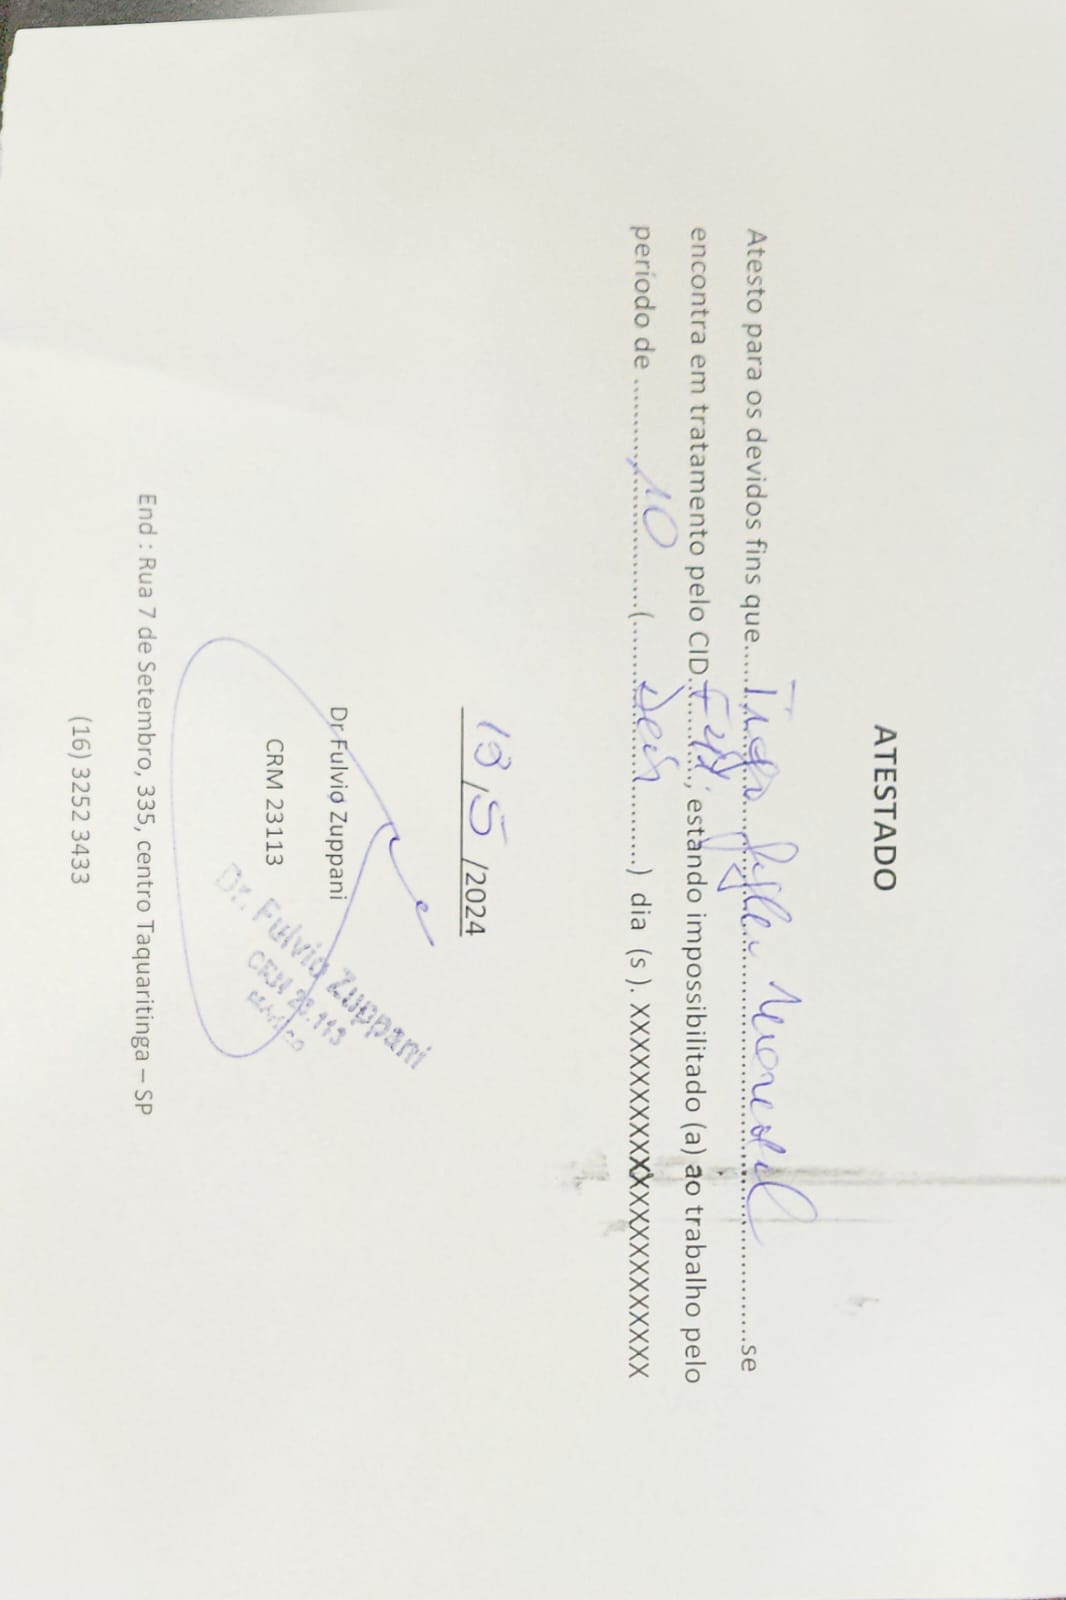 ATESTADO
Atesto para os devidos fins que.....................se
encontra em tratamento pelo CID........, estando impossibilitado (a) ao trabalho pelo
período de ..........10..........(..........Deis..........) dia (s ). XXXXXXXXXXXXXXXXXXXXXX
/5/2024
Dr Fulvio Zuppani
CRM 23113
Dr. Fulvio Zuppani
CRM 23.113
Médico
End : Rua 7 de Setembro, 335, centro Taquaritinga – SP
(16) 3252 3433